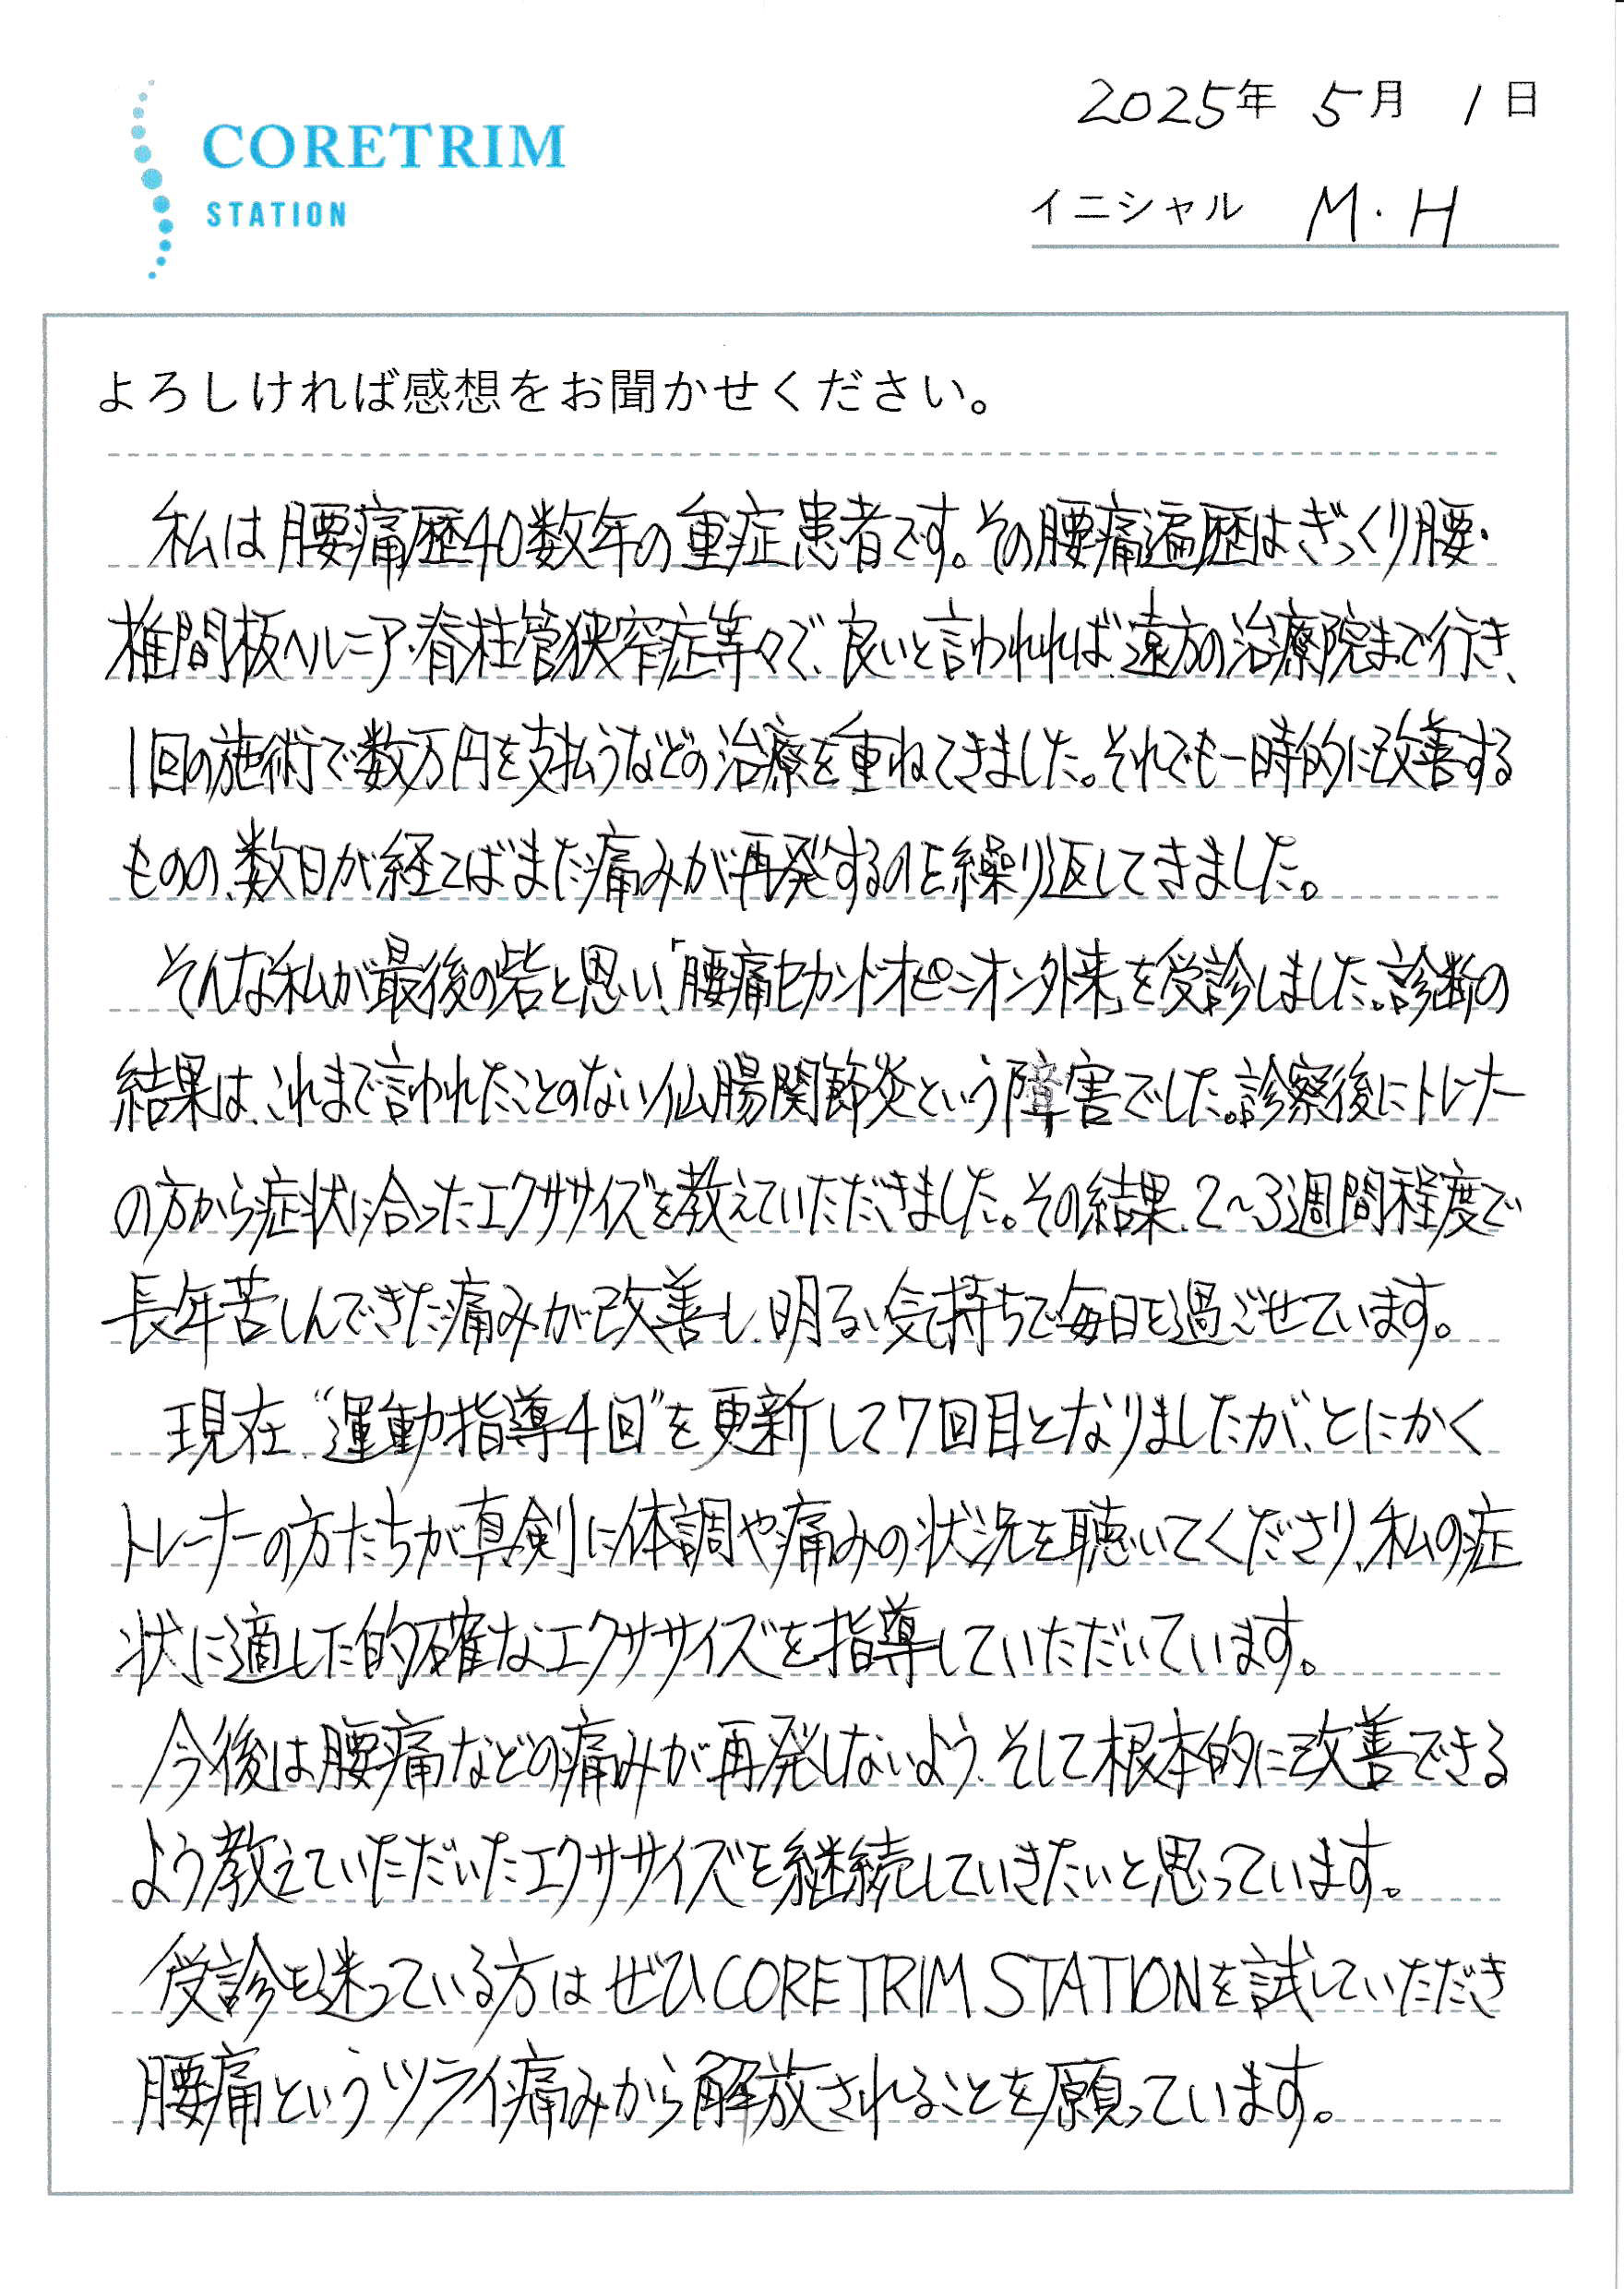 CORETRIM
STATION
2025年 5月 1日
イニシャル M.H
よろしければ感想をお聞かせください。
私は腰痛歴40数年の重症患者です。その腰痛遍歴はぎっくり腰・
椎間板ヘルニア・脊柱管狭窄症等々で、良いと言われれば、遠方の治療院まで行き、
1回の施術で数万円を支払うなどの治療を重ねてきました。それでも一時的に改善する
ものの、数日が経てばまた痛みが再発するのを繰り返してきました。
そんな私が最後の砦と思い、「腰痛セカンドオピニオン外来」を受診しました。診断の
結果は、これまで言われたことのない仙腸関節炎という障害でした。診察後にトレーナー
の方から症状に合ったエクササイズを教えていただきました。その結果、2〜3週間程度で
長年苦しんできた痛みが改善し、明るい気持ちで毎日を過ごせています。
現在、“運動指導4回”を更新して7回目となりましたが、とにかく
トレーナーの方たちが真剣に体調や痛みの状況を聴いてくださり、私の症
状に適した的確なエクササイズを指導していただいています。
今後は腰痛などの痛みが再発しないよう、そして根本的に改善できる
よう教えていただいたエクササイズを継続していきたいと思っています。
受診を迷っている方はぜひCORETRIM STATIONを試していただき
腰痛というツライ痛みから解放されることを願っています。